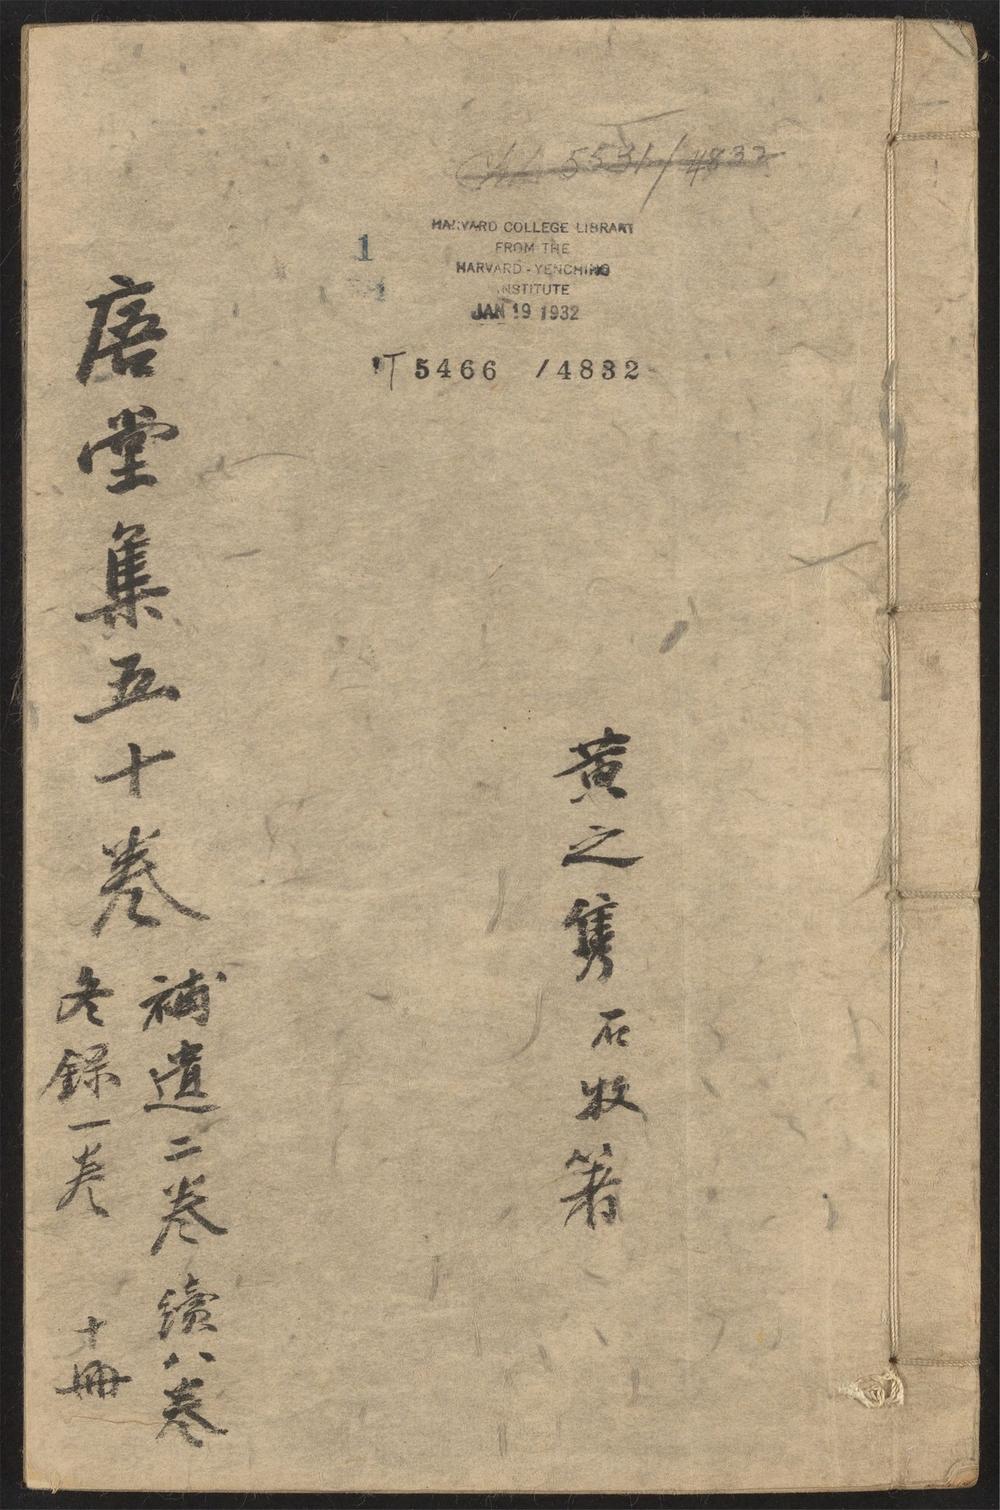 Ch.L 5531/4832
1
HARVARD COLLEGE LIBRARY
FROM THE
HARVARD-YENCHING
INSTITUTE
JAN 19 1932
T 5466 /4832
黃之雋石牧著
𢈪堂集五十卷
補遺二卷續八卷
冬錄一卷 十冊